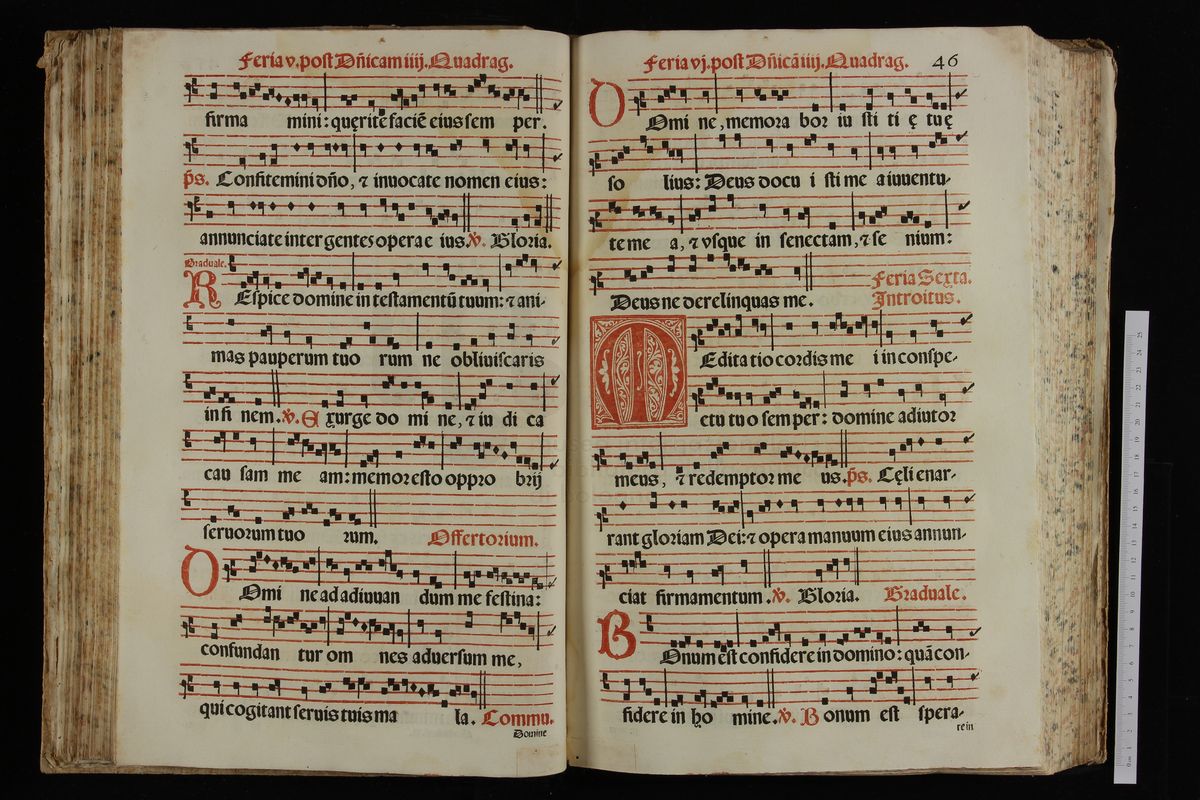 Feria v. post Dñicam iiij. Quadrag.
firma mini: quęrite faciē eius sem per.
p̄s. Confitemini dño, ⁊ inuocate nomen eius:
annunciate inter gentes opera e ius. ℣. Gloria.
Graduale.
REspice domine in testamentū tuum: ⁊ ani-
mas pauperum tuo rum ne obliuiscaris
in fi nem. ℣. E xurge do mi ne, ⁊ iu di ca
cau sam me am: memor esto oppro brij
seruorum tuo rum. Offertorium.
DOmi ne ad adiuuan dum me festina:
confundan tur om nes aduersum me,
qui cogitant seruis tuis ma la. Commu.
Domine
Feria vj. post Dñicā iiij. Quadrag. 46
DOmi ne, memora bor iu sti ti ę tuę
so lius: Deus docu i sti me a iuuentu-
te me a, ⁊ vsque in senectam, ⁊ se nium:
Deus ne derelinquas me. Feria Sexta.
Introitus.
MEdita tio cordis me i in conspe-
ctu tu o sem per: domine adiutor
meus, ⁊ redemptor me us. p̄s. Cęli enar-
rant gloriam Dei: ⁊ opera manuum eius annun-
ciat firmamentum. ℣. Gloria. Graduale.
BOnum est confidere in domino: quā con-
fidere in ho mine. ℣. B onum est spera-
re in
0 cm 1 2 3 4 5 6 7 8 9 10 11 12 13 14 15 16 17 18 19 20 21 22 23 24 25